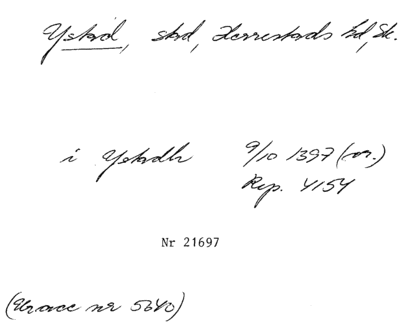 Ystad, stad, Herrestads hd, Sk.
i Ystadh 9/10 1397 (or.)
Rep. 4154
Nr 21697
(Uracc nr 5640)